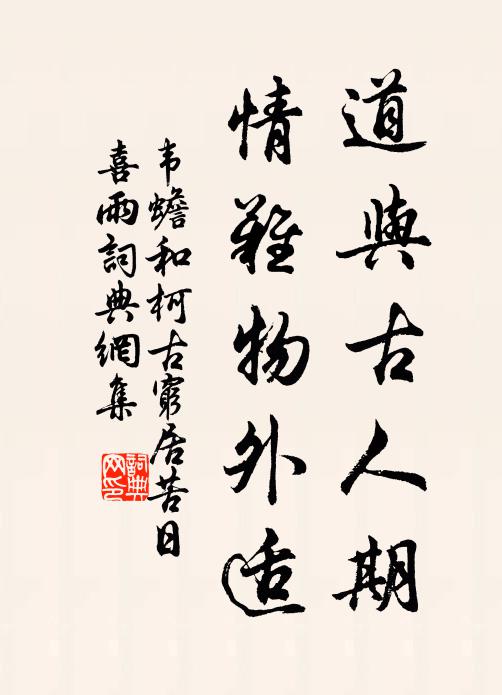 道與古人期
情難物外适
韦蟾和柯古窮居苦日
喜雨詞典網集
詞典
网印